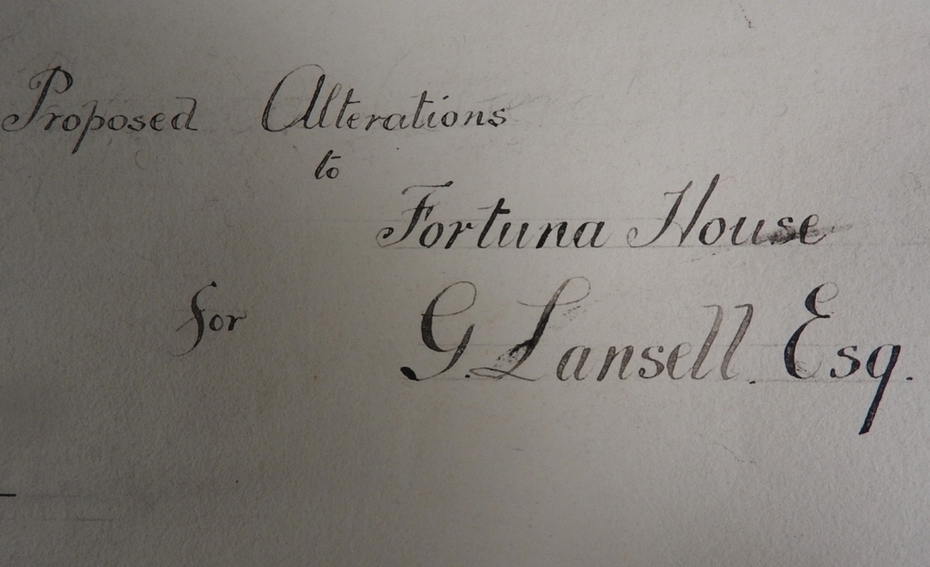 Proposed Alterations
to
Fortuna House
for G. Lansell. Esq.